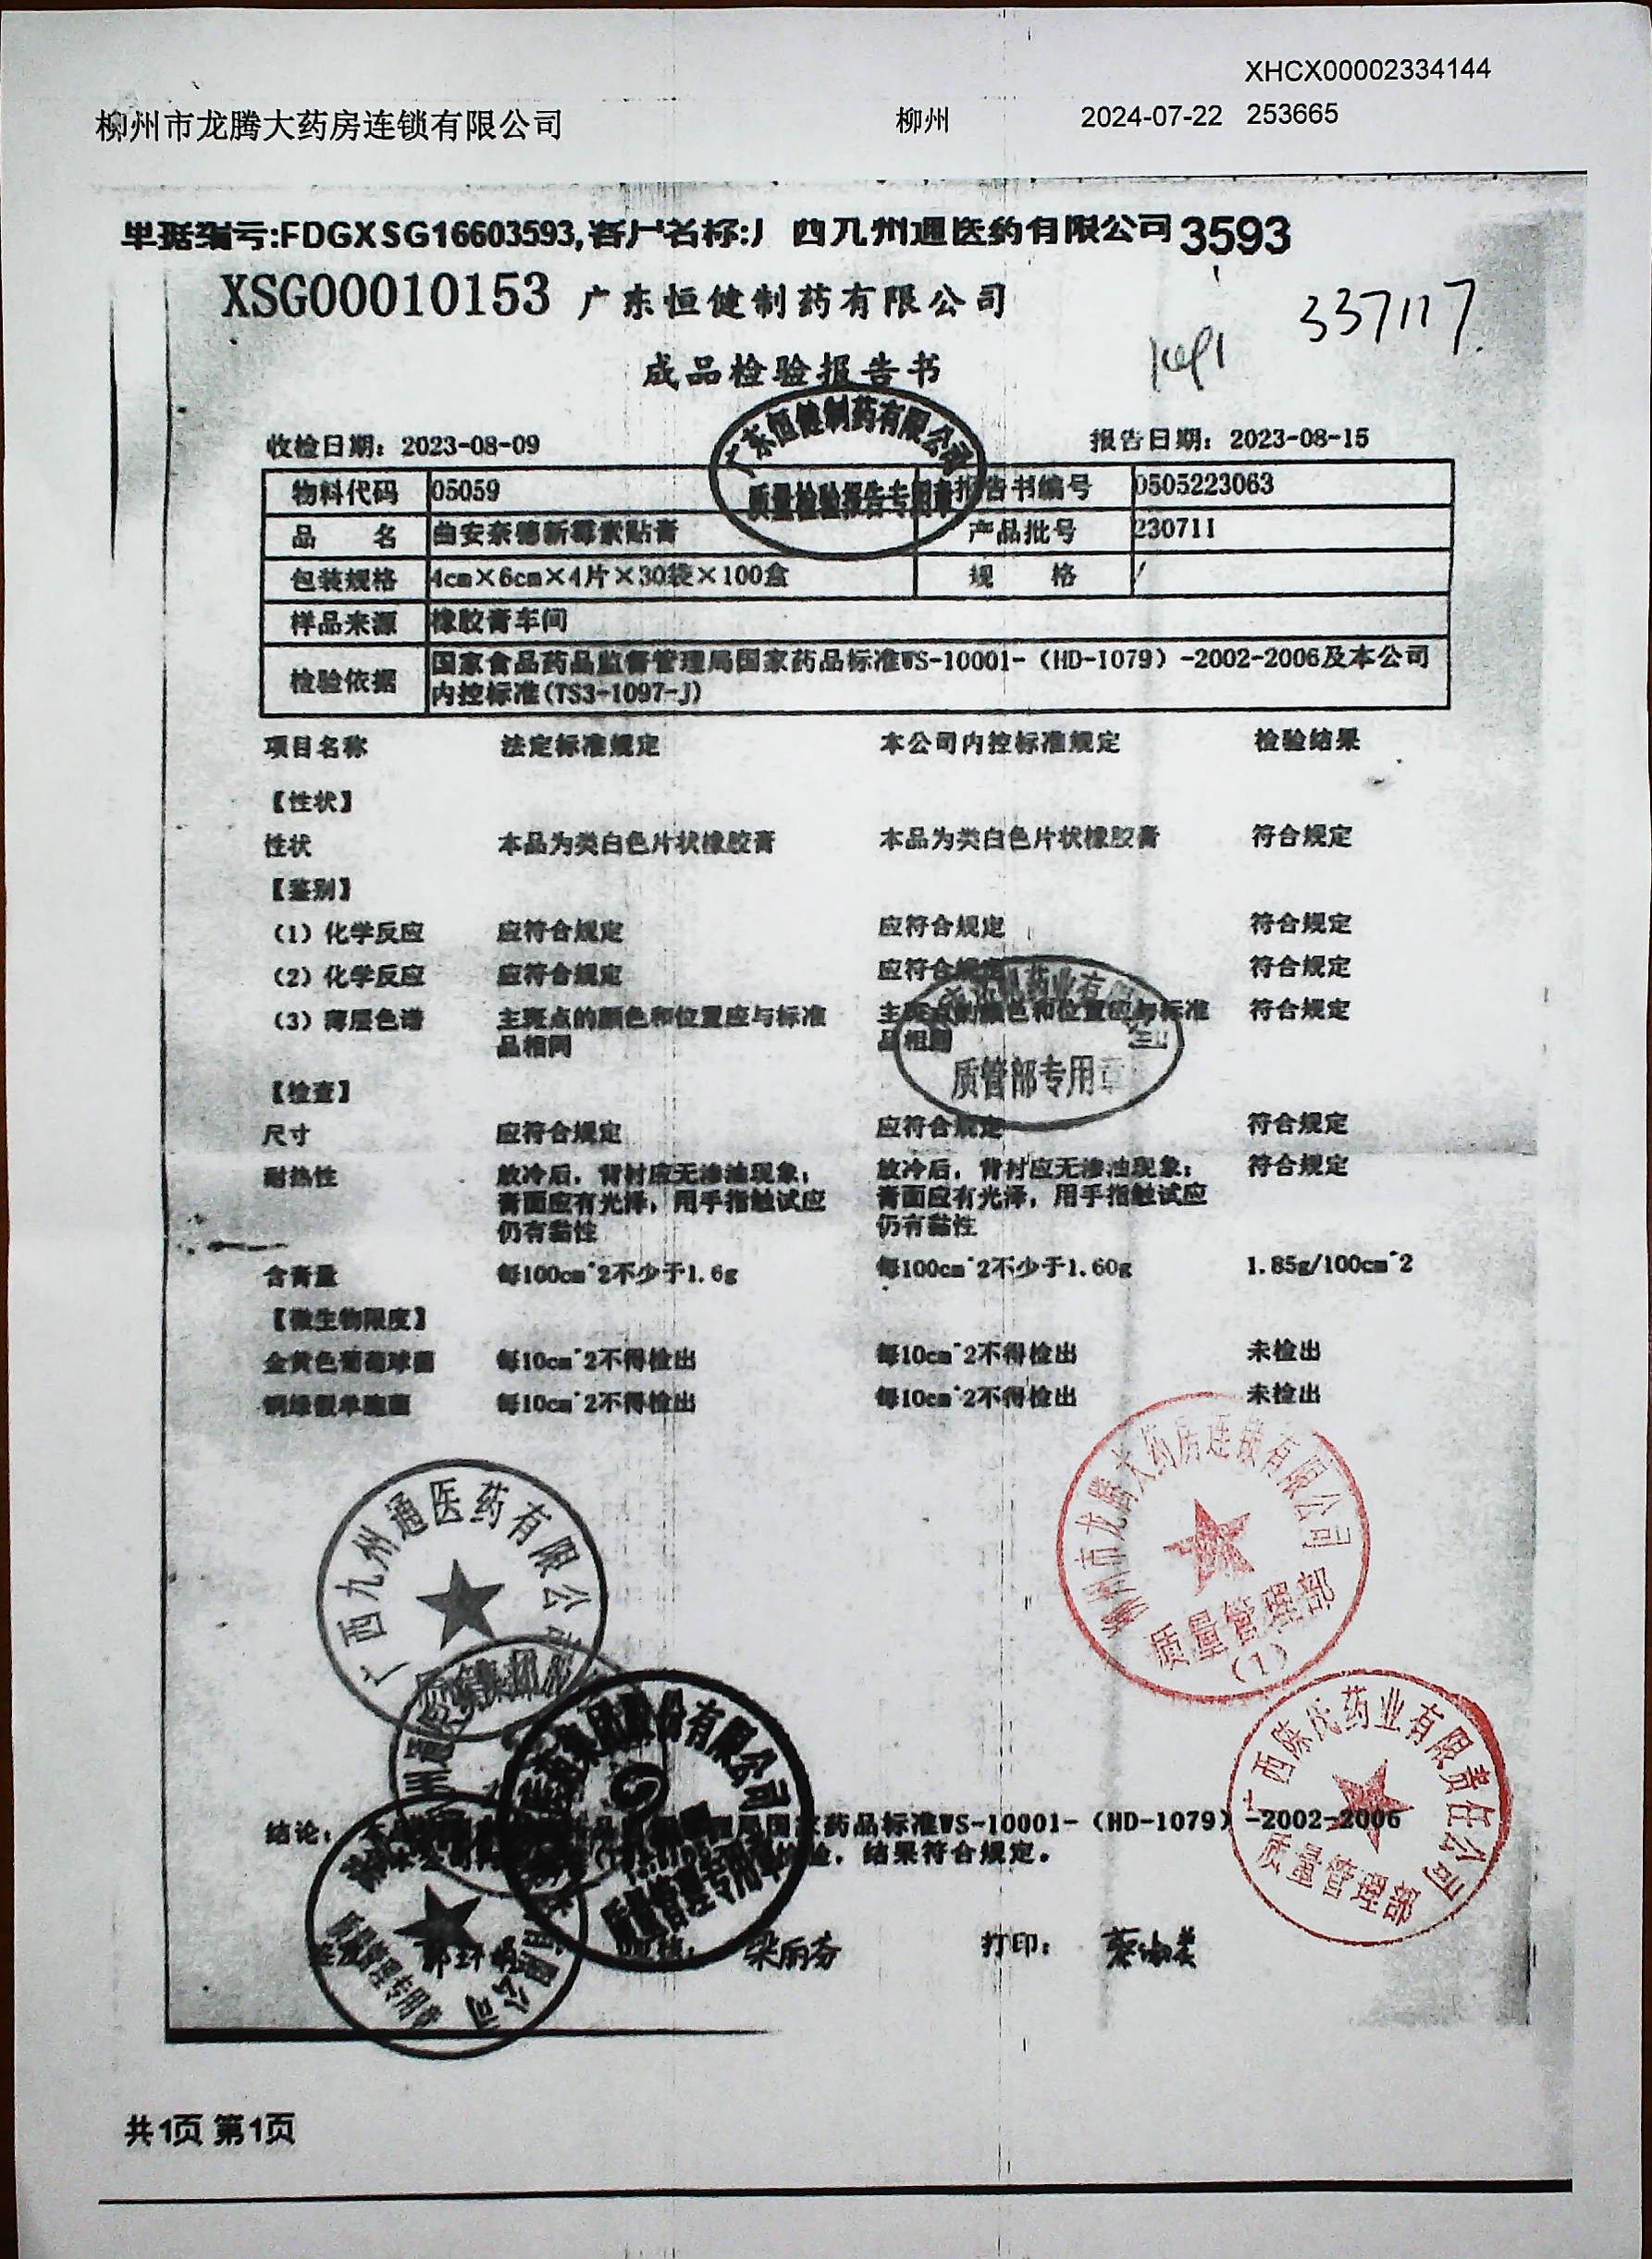 XHCX00002334144
柳州市龙腾大药房连锁有限公司 柳州 2024-07-22 253665
单据编号:FDGXSG16603593,客户名称:广西九州通医药有限公司 3593
XSG00010153 广东恒健制药有限公司
337117
成品检验报告书
广东恒健制药有限公司
质量检验报告专用章
收检日期：2023-08-09 报告日期：2023-08-15
物料代码 05059 报告书编号 0505223063
品 名 曲安奈德新霉素贴膏 产品批号 230711
包装规格 4cm×6cm×4片×30袋×100盒 规 格 /
样品来源 橡胶膏车间
检验依据 国家食品药品监督管理局国家药品标准WS-10001-（HD-1079）-2002-2006及本公司
内控标准(TS3-1097-J)
项目名称 法定标准规定 本公司内控标准规定 检验结果
【性状】
性状 本品为类白色片状橡胶膏 本品为类白色片状橡胶膏 符合规定
【鉴别】
（1）化学反应 应符合规定 应符合规定 符合规定
（2）化学反应 应符合规定 应符合规定 符合规定
（3）薄层色谱 主斑点的颜色和位置应与标准 主斑点的颜色和位置应与标准 符合规定
品相同 品相同
质管部专用章
【检查】
尺寸 应符合规定 应符合规定 符合规定
耐热性 放冷后，背衬应无渗油现象； 放冷后，背衬应无渗油现象； 符合规定
膏面应有光泽，用手指触试应 膏面应有光泽，用手指触试应
仍有黏性 仍有黏性
含膏量 每100cm^2不少于1.6g 每100cm^2不少于1.60g 1.85g/100cm^2
【微生物限度】
金黄色葡萄球菌 每10cm^2不得检出 每10cm^2不得检出 未检出
铜绿假单胞菌 每10cm^2不得检出 每10cm^2不得检出 未检出
广西九州通医药有限公司
柳州市龙腾大药房连锁有限公司
质量管理部
（1）
集团股份有限公司
质量管理专用章
广西陈代药业有限责任公司
质量管理部
结论： 国家药品标准WS-10001-（HD-1079）-2002-2006
检验，结果符合规定。
质量管理专用章
梁丽芬 打印：
共1页 第1页